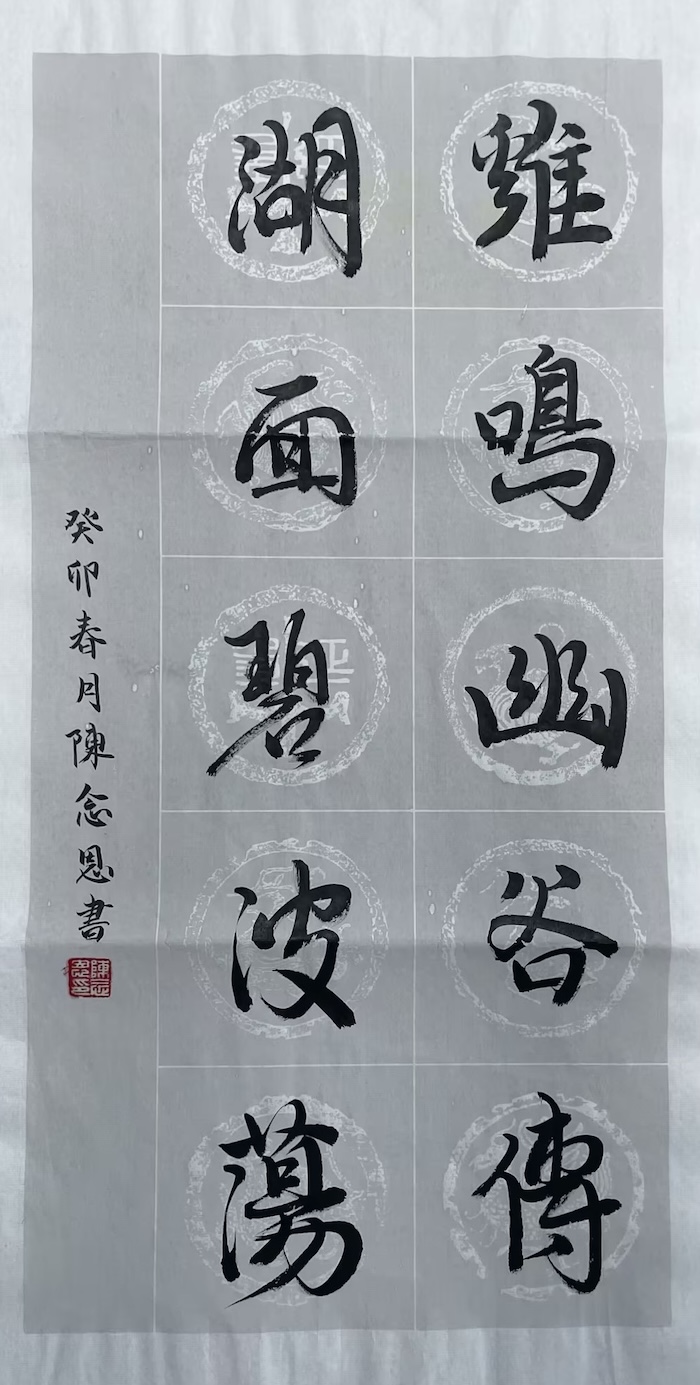 雞鳴幽谷傳
湖面碧波蕩
癸卯春月陳念恩書
陳念恩印